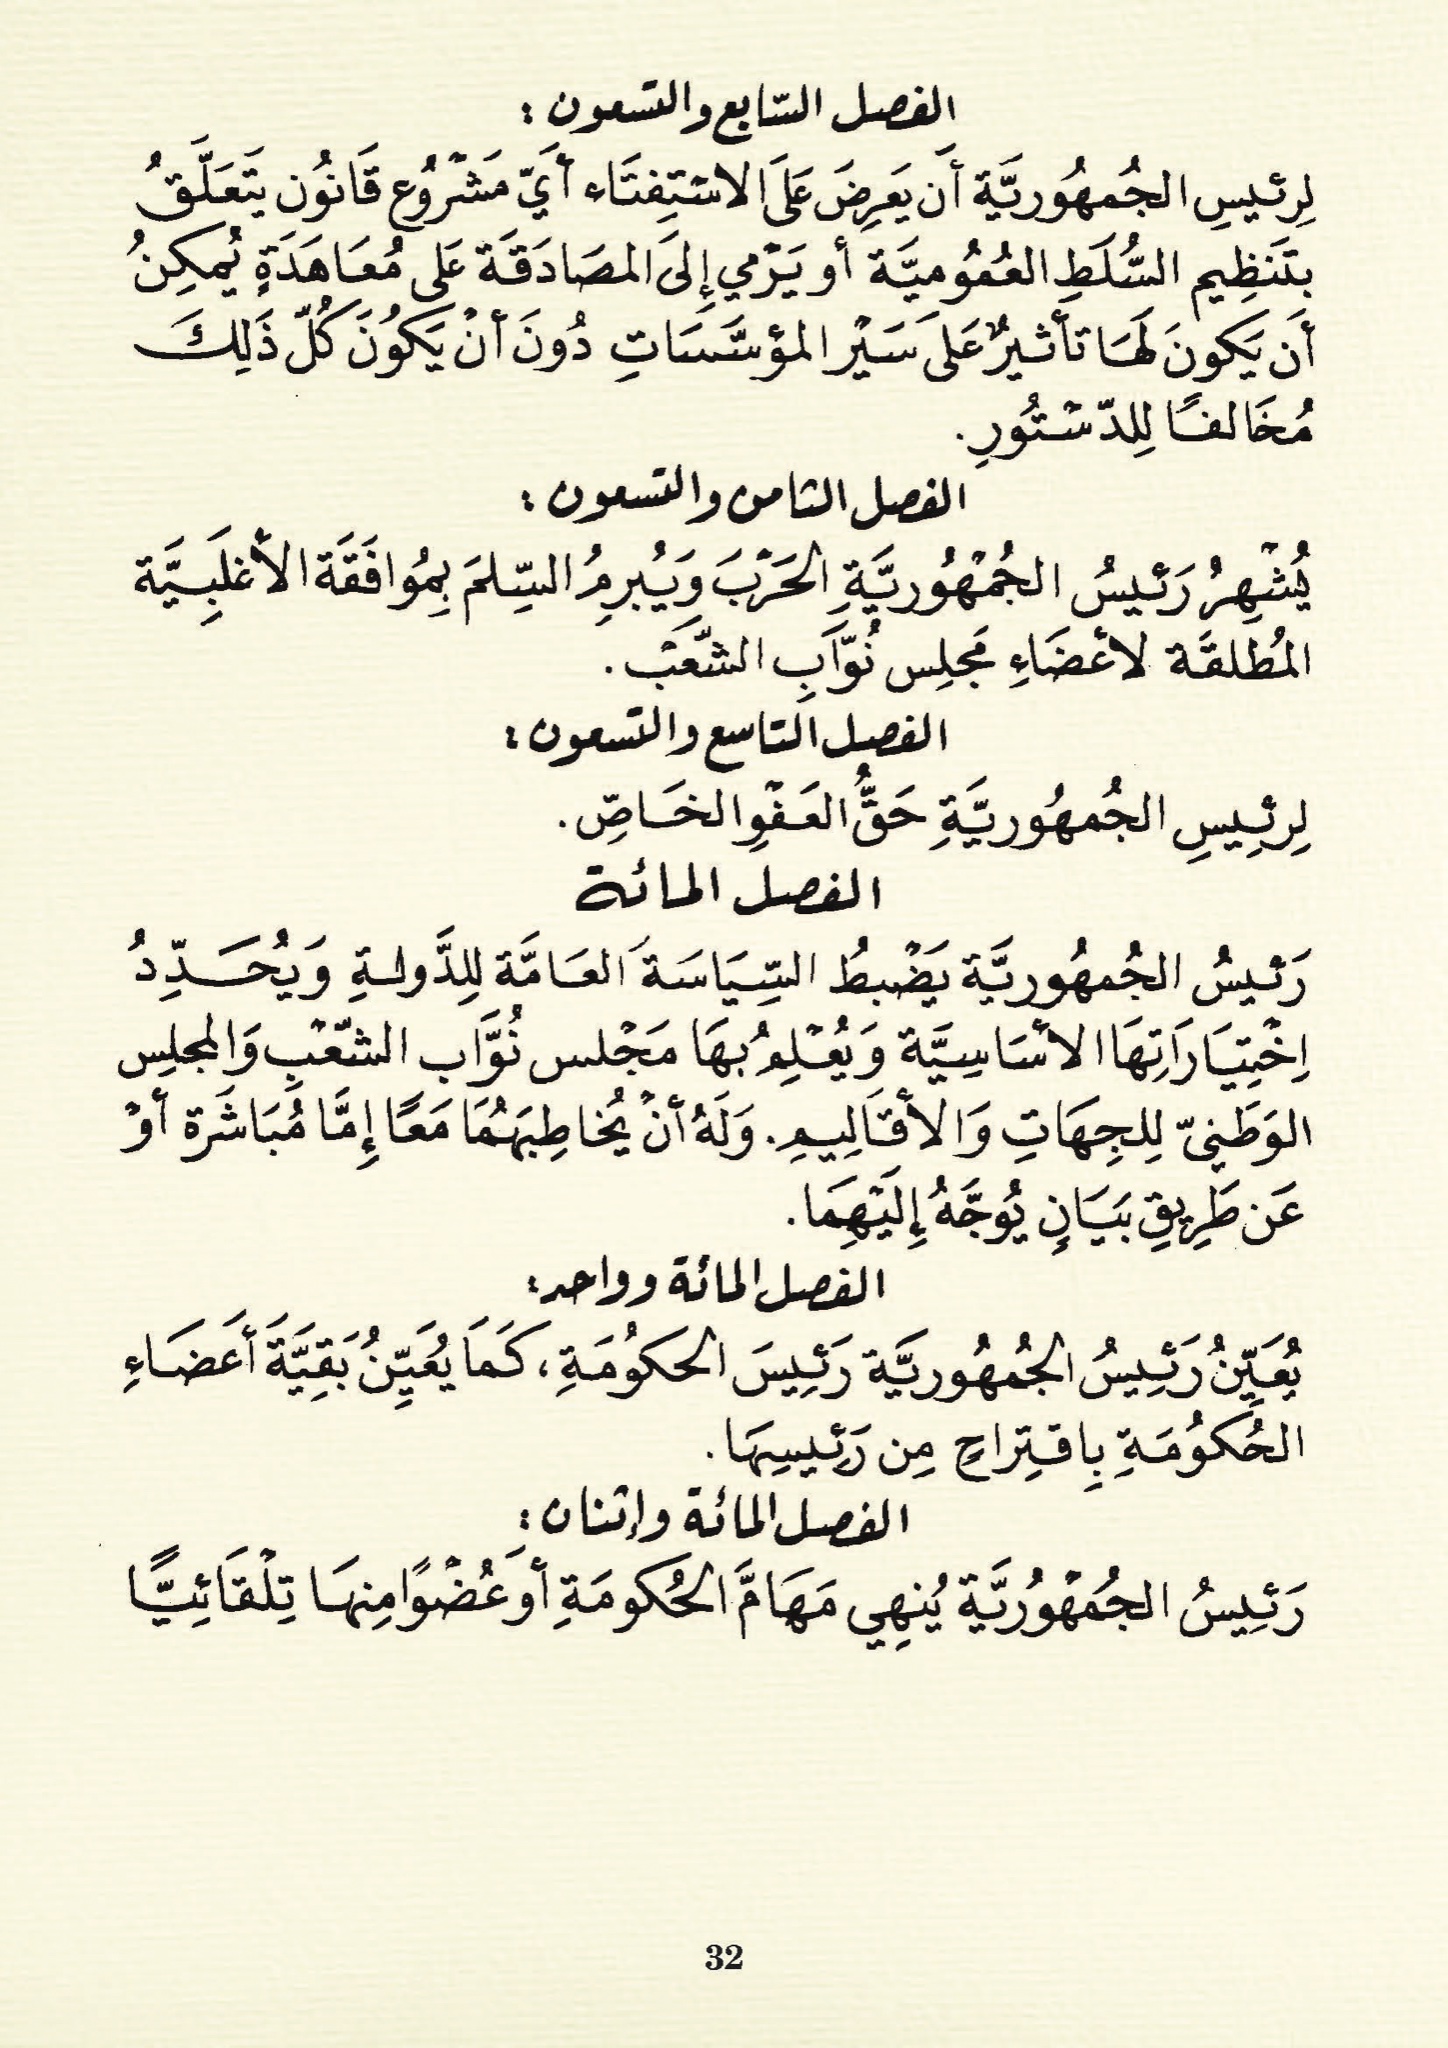 الفصل السّابع والتسعون :
لِرئيسِ الجُمهُوريَّة أَن يَعرِضَ عَلَى الاسْتِفتَاء أَيّ مَشْرُوع قَانُون يتَعَلَّقُ
بتَنظِيم السُّلَطِ العُمُوميَّة أو يَرْمي إِلَى المصَادَقَة عَلى مُعَاهَدَةٍ يُمكِنُ
أَن يَكونَ لَهَا تأثيرٌ عَلَى سَيْر المؤسَّسَاتِ دُونَ أنْ يَكُونَ كُلّ ذَلِكَ
مُخَالفًا لِلدّسْتُورِ.
الفصل الثامن والتسعون :
يُشْهِرُ رَئيسُ الجُمْهُوريَّةِ الحَرْبَ وَيُبرِمُ السِّلمَ بِمُوافَقَة الأغلَبِيَّة
المُطلقَة لأعضَاءِ مَجلِس نُوَّابِ الشَّعَبْ.
الفصل التاسع والتسعون :
لِرئِيسِ الجُمهُوريَّةِ حَقُّ العَفْوِ الخَاصِّ.
الفصل المائة
رَئيسُ الجُمهُوريَّة يَضْبطُ السِّيَاسَةَ العَامَّة لِلدَّولةِ وَيُحَدِّدُ
اِخْتِيَارَاتِهَا الأسَاسِيَّة وَيُعْلِمُ بهَا مَجْلس نُوَّاب الشّعْبِ وَالمجلِس
الوَطَنِيّ لِلجِهَاتِ وَالأقَالِيمِ. وَلَهُ أنْ يُخاطِبَهُمَا مَعًا إِمَّا مُبَاشَرَة أوْ
عَن طَرِيقِ بيَانٍ يُوجَّهُ إِلَيْهِمَا.
الفصل المائة وواحد:
يُعَيِّنُ رَئِيسُ الجُمهُوريَّة رَئِيسَ الحكُومَةِ، كَمَا يُعَيِّنُ بَقِيَّةَ أَعضَاءِ
الحُكوُمَةِ بِاقتِراحٍ مِن رَئِيسِهَا.
الفصل المائة وإثنان :
رَئِيسُ الجُمْهُوُريَّة يُنهِي مَهَامَّ الحُكومَةِ أوَ عُضْوًا مِنهَا تِلْقَائِيًّا
32